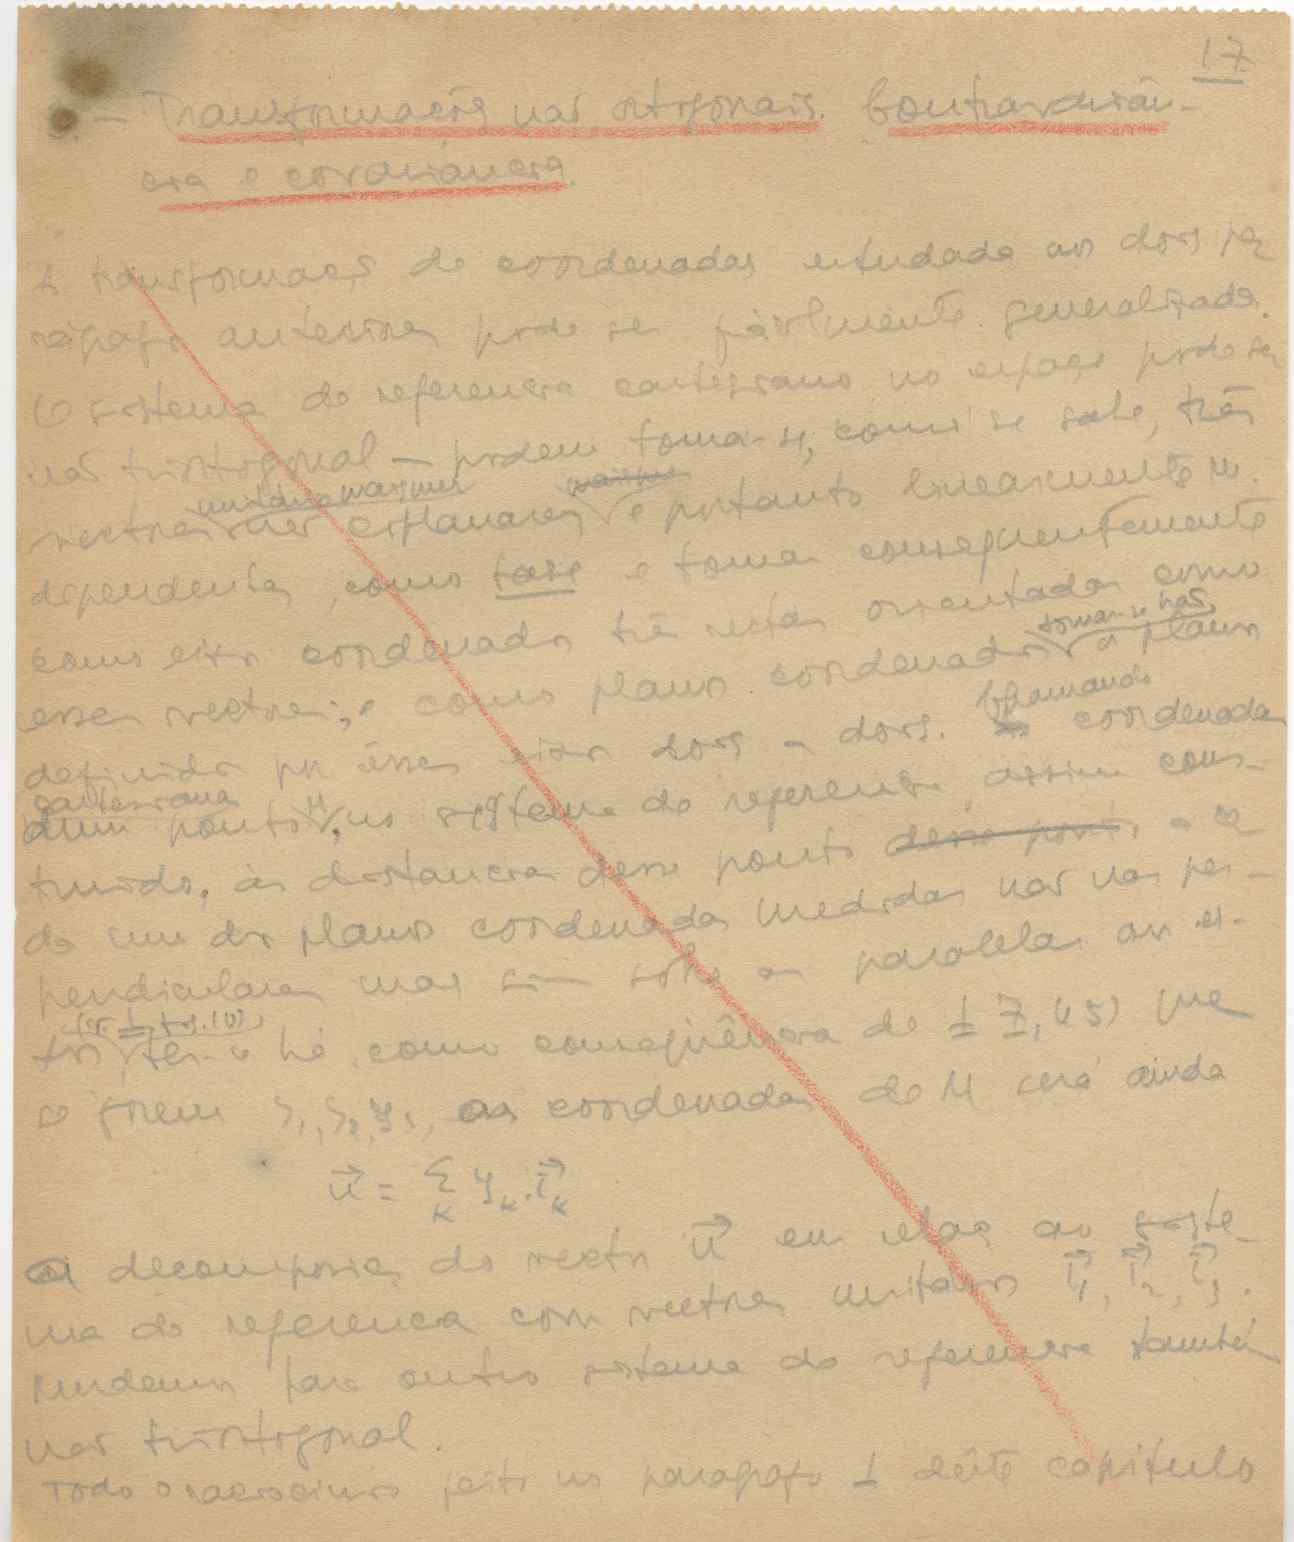 17
— Transformação não ortogonais. Contravariân-
cia e covariância.
A transformação de coordenadas estudada nos dois pa
rágrafos anteriores pode ser fàcilmente generalizada.
O sistema de referência cartesiano no espaço pode ser
não triortogonal — podem tomar-se, como se sabe, três
unitários
vectores não complanares e portanto linearmente in-
dependentes, como base e tomar consequentemente
como eixos coordenados três rectas orientadas como
tomam-se
esses vectores; e como planos coordenados os planos
definidos por êsses eixos dois a dois. Chamando
coordenadas
cartesianas
dum ponto M, no sistema de referência assim cons-
tituido, às distâncias desse ponto desse ponto a ca
da um dos planos coordenados medidas não nas per-
pendiculares mas sim sobre as paralelas aos ei-
xos, ter-se-há como consequência de 1 7, 45) que
se forem y₁, y₂, y₃, as coordenadas de M será ainda
u⃗ = Σ_k y_k . i⃗_k
a decomposição do vector u⃗ em relação ao siste-
ma de referência com vectores unitários i⃗₁, i⃗₂, i⃗₃.
Mudemos para outro sistema de referência também
não triortogonal.
Todo o raciocínio feito no parágrafo 1 dêste capítulo